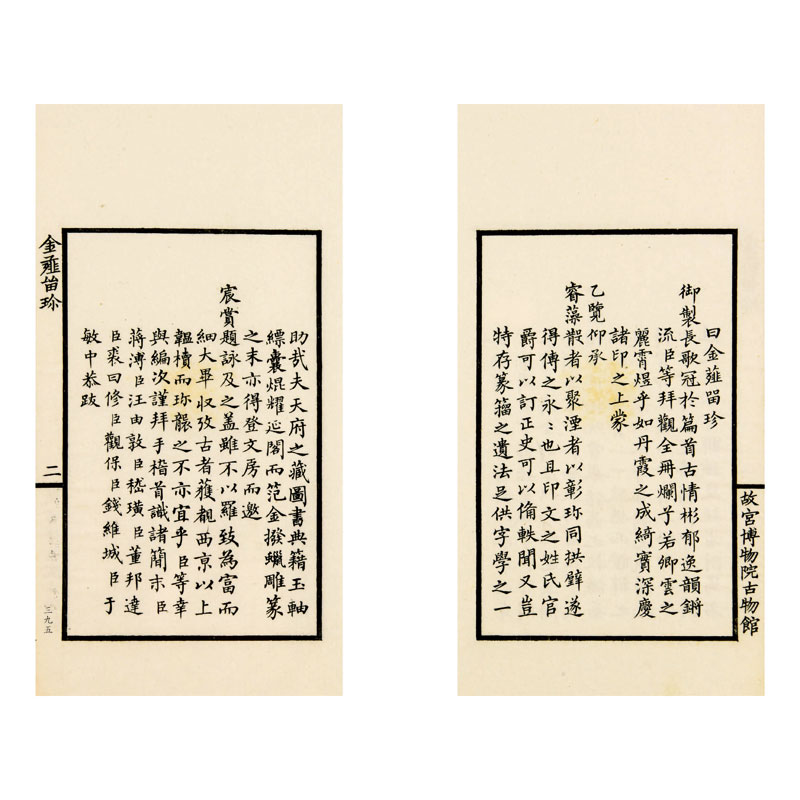 曰金薤畱珍
御製長歌冠於篇首古情彬郁逸韻鏘
流臣等拜觀全冊爛乎若卿雲之
麗霄煜乎如丹霞之成綺實深慶
諸印之上蒙
乙覽仰承
睿藻散者以聚湮者以彰珎同拱璧遂
得傳之永〻也且印文之姓氏官
爵可以訂正史可以俻軼聞又豈
特存篆籀之遺法足供字學之一
故宮博物院古物館
助哉夫天府之藏圖書典籍玉軸
縹囊焜耀延閣而范金撥蠟雕篆
之末亦得登文房而邀
宸賞題詠及之盖雖不以羅致為富而
細大畢収攷古者獲覩西京以上
韞櫝而珎襲之不亦宜乎臣等幸
與編次謹拜手稽首識諸簡末臣
蔣溥臣汪由敦臣嵇璜臣董邦達
臣裘曰修臣觀保臣錢維城臣于
敏中恭跋
金薤畱珎
二
三九五